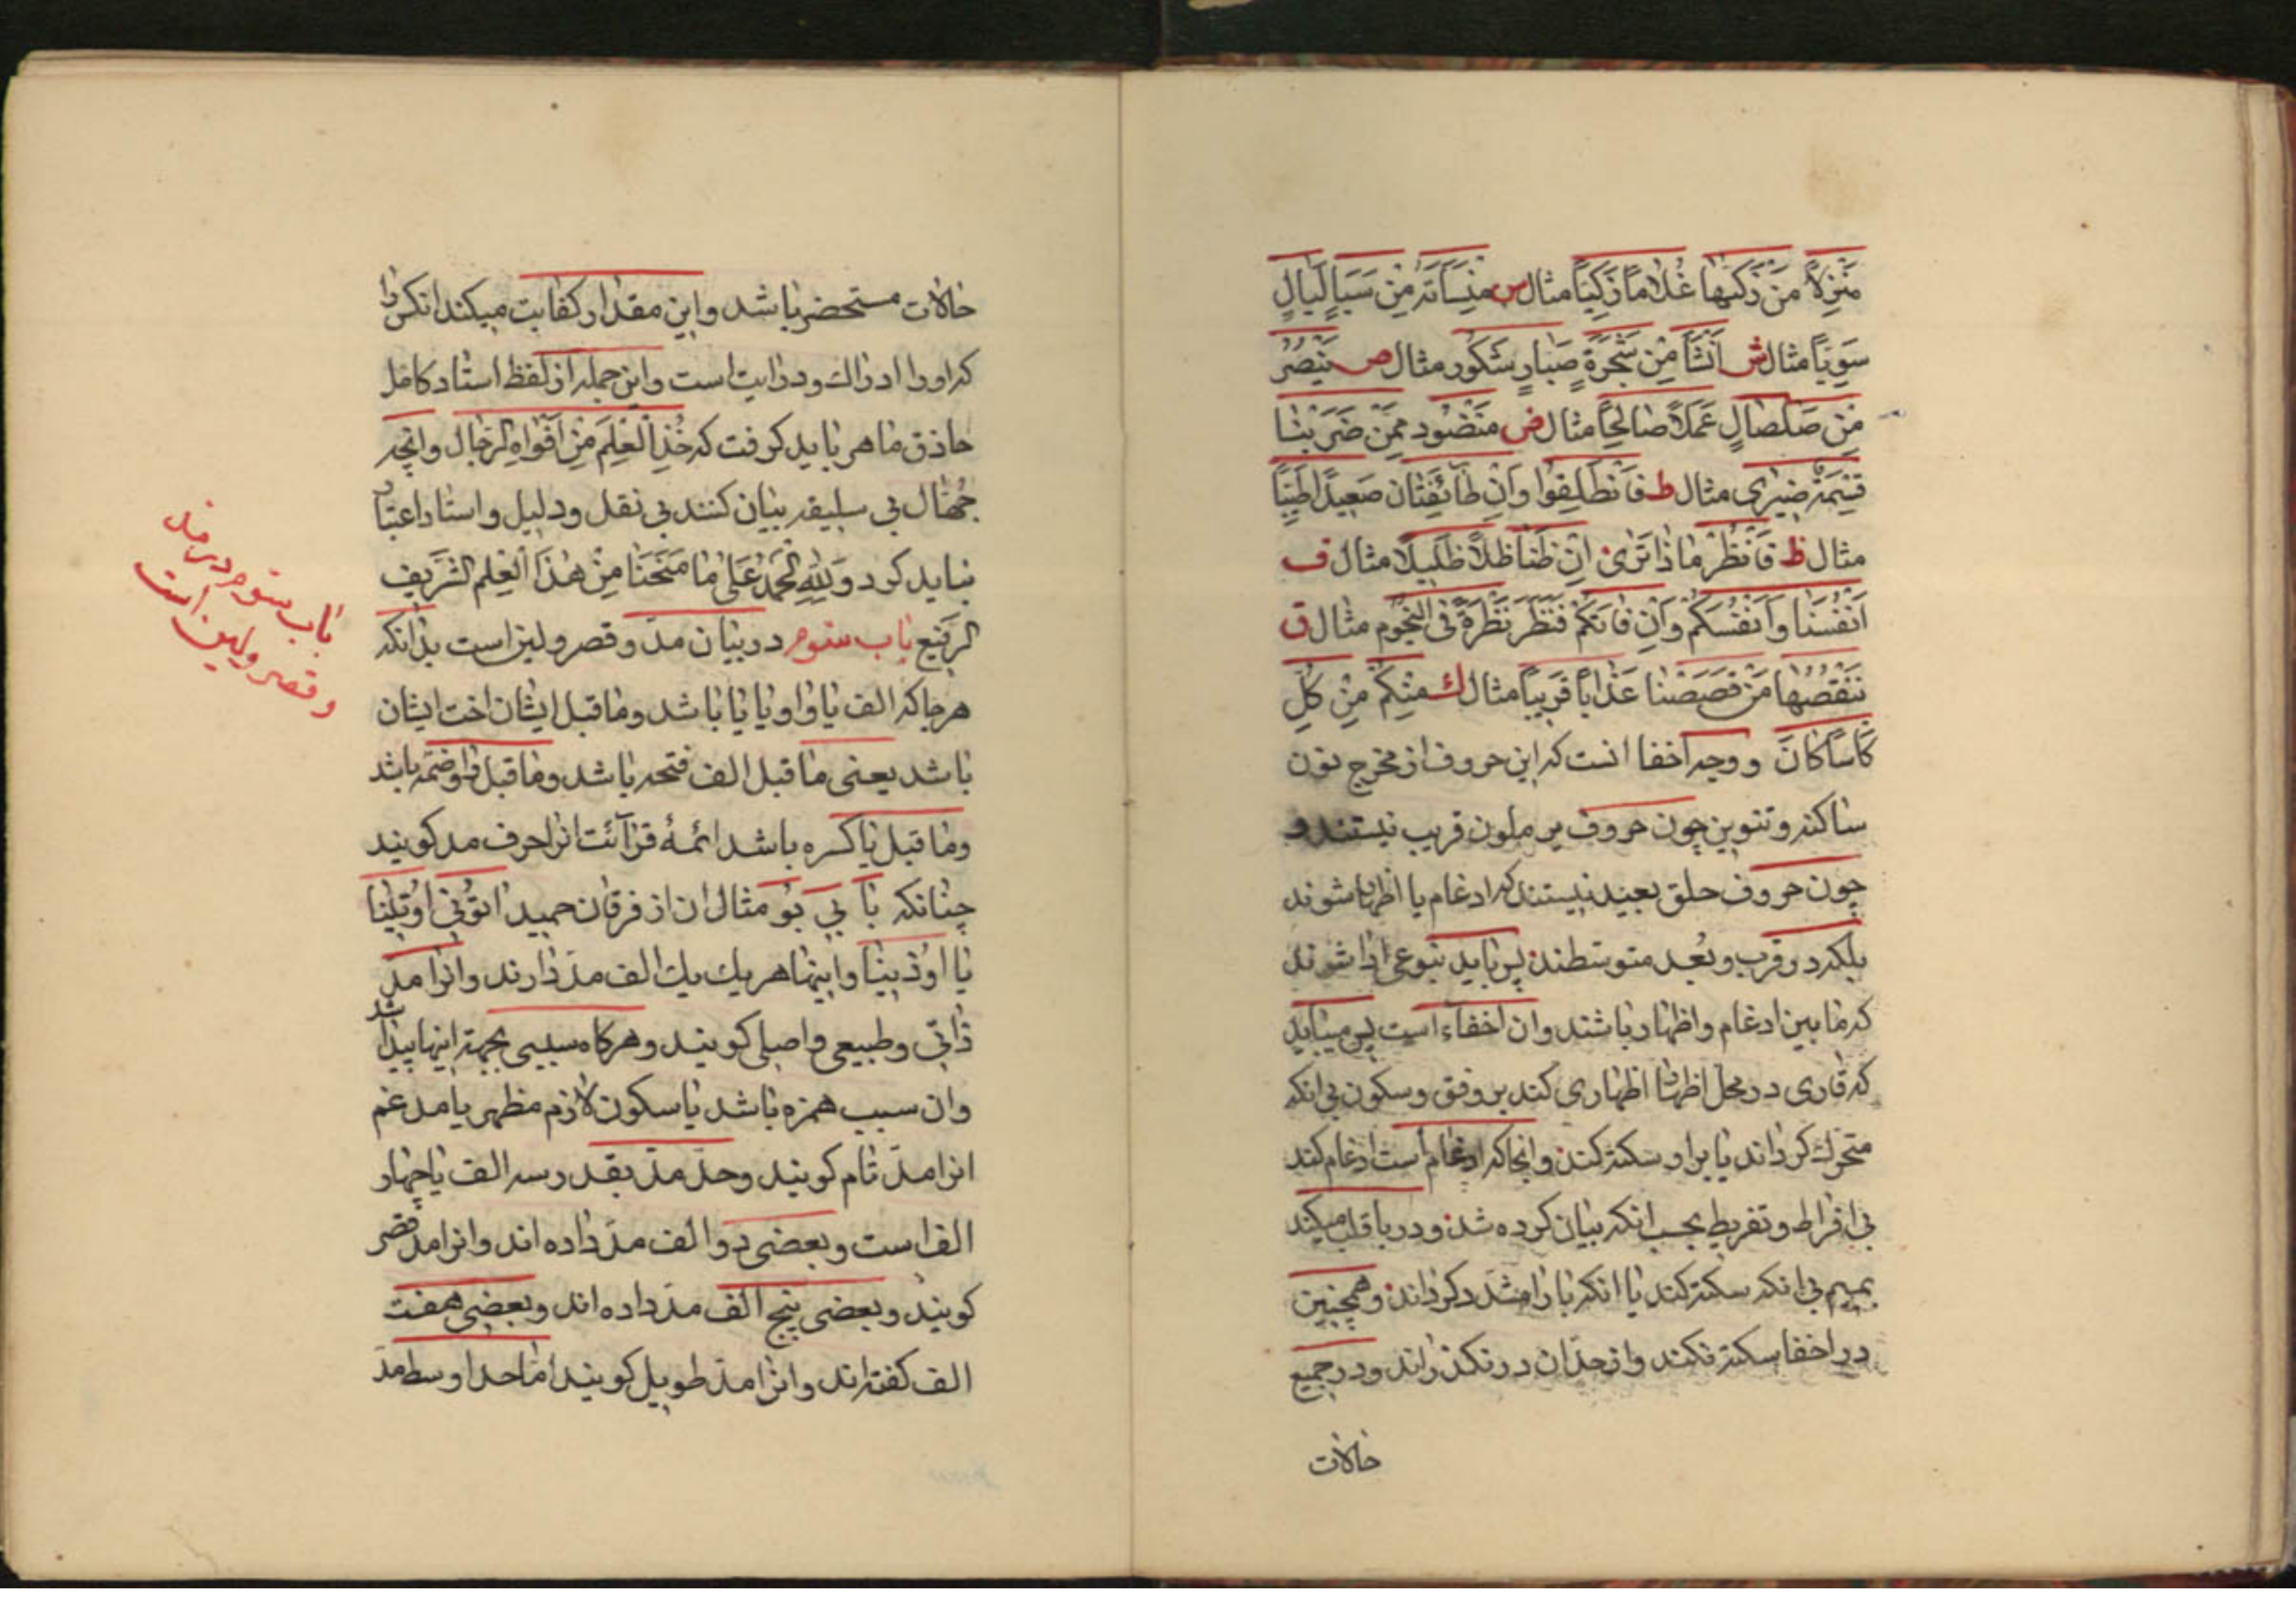 مَنْزِلاً مَنْ زَكّٰیها غُلٰامًا زَكِیًّا مثال س مِنْسَأَتَه مِنْ سَبَإٍ لَیٰالٍ
سَوِیًّا مثال ش اَنْشَأَ مِنْ شَجَرَةٍ صَبّارٍ شَكُورٍ مثال ص یَنْصُرُ
مِنْ صَلْصٰالٍ عَمَلاً صٰالِحًا مثال ض مَنْضُود مِمَّنْ ضَرَبْنٰا
قِسْمَةٌ ضِیزٰی مثال ط فَانْطَلِقُوا وَاِنْ طٰآئِفَتٰان صَعِیدًا طَیِّبًا
مثال ظ فَانْظُرْ مٰاذٰا تَرٰی اِنْ ظَنّٰا ظِلاًّ ظَلِیلاً مثال ف
اَنْفُسَنٰا وَاَنْفُسَكُمْ وَاِنْ فٰاتَكُمْ فَنَظَرَ نَظْرَةً فِی النُّجُومِ مثال ق
نَنْقُصُهٰا مَنْ قَصَصْنٰا عَذٰابًا قَرِیبًا مثال ك مِنْكُمْ مِنْ كُلِّ
كَأْسًا كٰانَ و وجه اخفا انست كه این حروف از مخرج نون
ساكنه و تنوین چون حروف یرملون قریب نیستند و
چون حروف حلق بعید نیستند كه ادغام یا اظهار شوند
بلكه در قرب و بُعد متوسّطند پس باید بنوعی ادا شوند
كه مابین ادغام و اظهار باشند وان اخفآء است پس میباید
كه قاری در محل اظهار اظهاری كند بر وفق و سكون بی انكه
متحرّك كرداند یا برا و سكته كند و انجا كه ادغام است ادغام كند
بی افراط و تفریط بحسب انكه بیان كرده شد و در با قلب میكند
بمیم بی انكه سكته كند یا انكه با را مشدّد كرداند و همچنین
در اخفا سكته نكند و از حدّ ان در نكذراند و در جمیع
حالات
حالات مستحضر باشد و این مقدار كفایت میكند انكس را
كه او را ادراك و درایت است و این جمله از لفظ استاد كامل
حاذق ماهر باید كرفت كه خُذِ الْعِلْمَ مِنْ اَفْوٰاهِ الرِّجٰال و انچه
جُهّال بی سلیقه بیان كنند بی نقل و دلیل و استاد اعتبار
نباید كرد وَلِلّٰهِ الْحَمْدُ عَلٰی مٰا مَنَحَنٰا مِنْ هٰذَا الْعِلْمِ الشَّرِیفِ
الرَّفیع باب سوم در بیان مدّ و قصر و لین است بدانكه
هرجا كه الف یا واو یا یا باشد و ماقبل ایشان اخت ایشان
باشد یعنی ماقبل الف فتحه باشد و ماقبل واو ضمّه باشد
و ماقبل یا كسره باشد ائمهٔ قرآئت انرا حرف مد كویند
چنانكه بٰا بِی بُو مثال ان از فرقان حمید اتُونِی اوُتِینٰا
یا اوُذینٰا و اینها هر یك یك الف مدّ دارند و انرا مدّ
ذاتی و طبیعی و اصلی كویند و هركاه سببی بجهة اینها پیدا شد
وان سبب همزه باشد یا سكون لازم مظهر یا مدغم
انرا مدّ تام كویند و حدّ مدّ بقدر سه الف یا چهار
الف است و بعضی دو الف مدّ داده اند و انرا مد قصر
كویند و بعضی پنج الف مدّ داده اند و بعضی هفت
الف كفته اند و انرا مدّ طویل كویند امّا حد اوسط مدّ
باب سوم در مد
و قصر و لین است